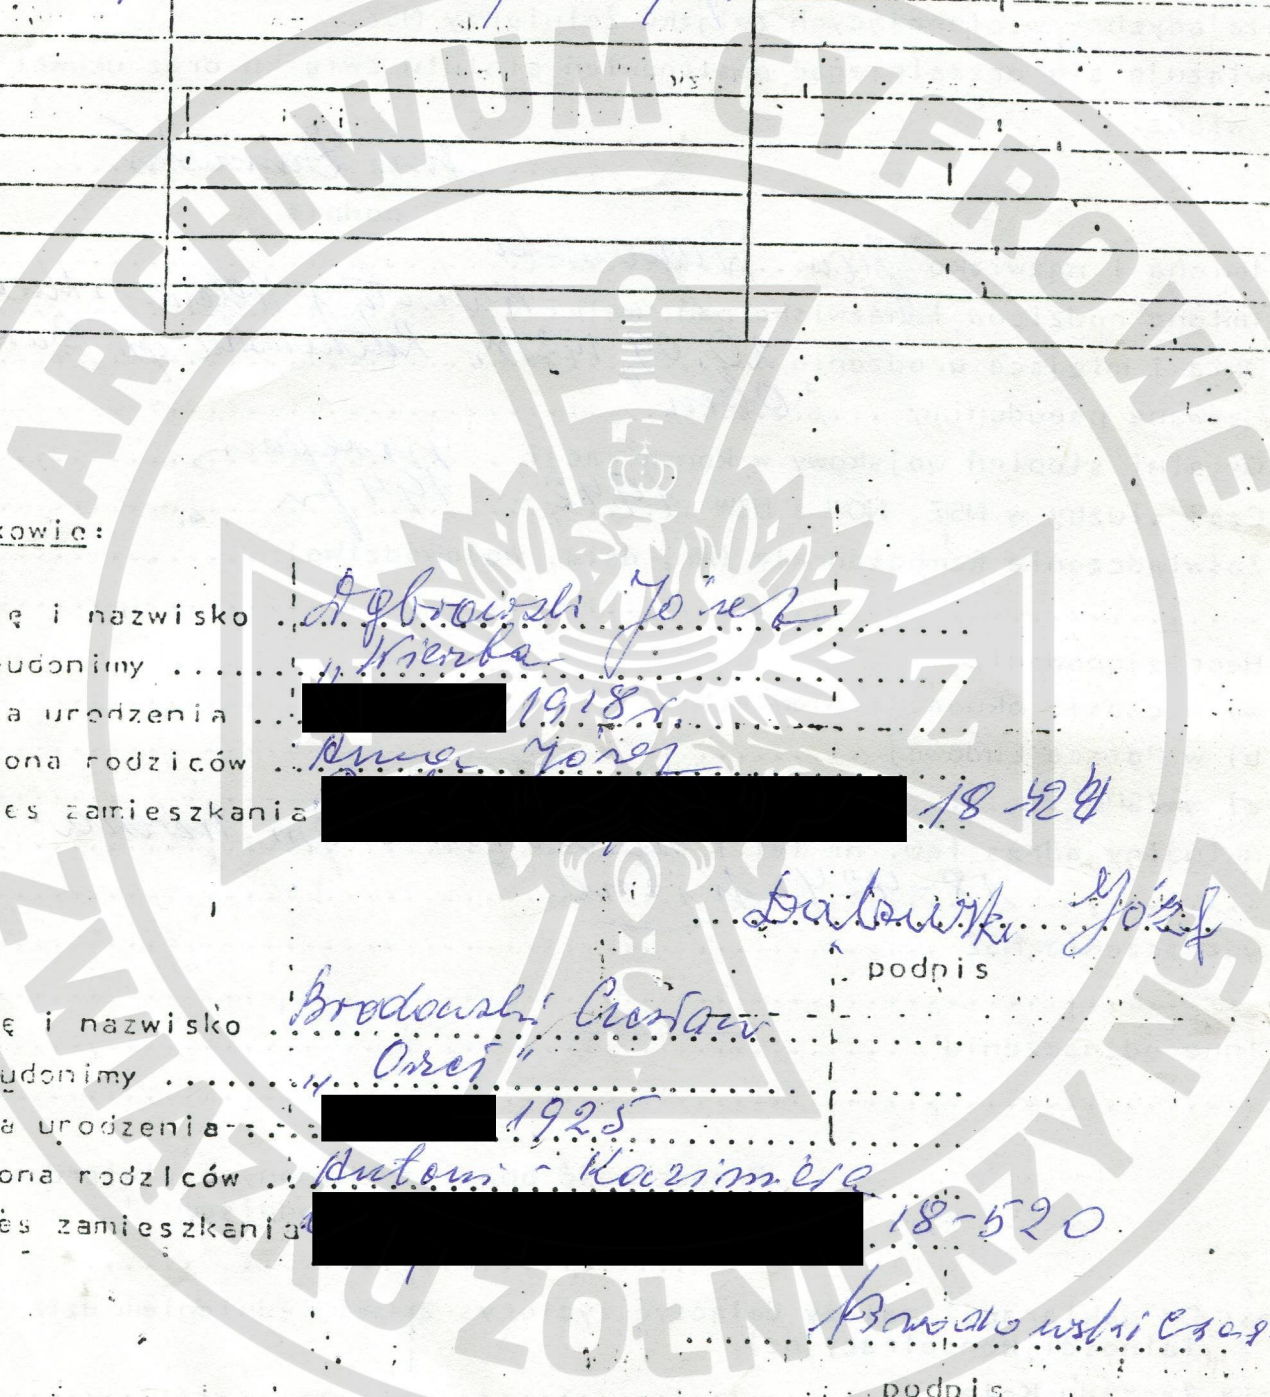 ARCHIWUM CYFROWE
ZWIĄZKU ŻOŁNIERZY NSZ
kowie:
ę i nazwisko Dąbrowski Józef
udonimy „Wierzba
a urodzenia 1918 r.
ona rodziców Anna Józef
es zamieszkania 18-424
Dąbrowski Józef
podpis
ę i nazwisko Brodowski Czesław
udonimy „Orzeł"
a urodzenia 1925
ona rodziców Antoni - Kazimiera
es zamieszkania 18-520
Brodowski Czes
podpis